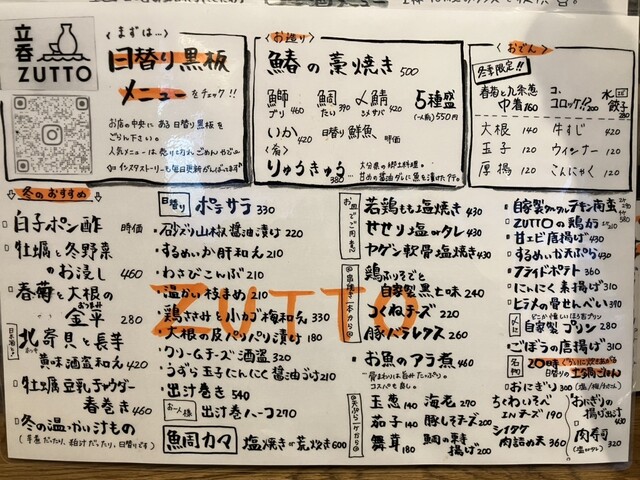 立呑
ZUTTO
〈まずは…〉
日替り黒板
メニューをチェック!!
お店の中央にある日替り黒板を
ご覧下さい。
〈お造り〉
鰆の藁焼き 500
鰤 ブリ 460
鯛 たい 390
〆鯖 シメサバ 420
5種盛
(一人前) 550円
いか 420
日替り鮮魚 時価
〈有〉
りゅうきゅう 380
大分県の郷土料理。
〈おでん〉
冬季限定!!
春菊と九条葱
巾着 160
コロッケ!! 200
水餃子 280
大根 140
牛すじ 440
玉子 120
ウィンナー 120
厚揚 120
こんにゃく 120
冬のおすすめ
白子ポン酢 時価
牡蠣と冬野菜
のお浸し 460
春菊と大根の
金平 280
北寄貝と長芋
黄味酒盗和え 420
牡蠣豆乳チャウダー
春巻き 460
冬の温かい汁もの
(予農だったり、粕汁だったり、日替りです)
日替り ポテサラ 330
砂ずり山椒醤油漬け 220
するめいか肝和え 210
わさびこんぶ 210
温かい枝まめ 210
鶏ささみと小カブ梅和え 330
大根の皮パリパリ漬け 180
クリームチーズ酒盗 320
うずら玉子にんにく醤油漬け 210
出汁巻き 540
お一人様 出汁巻ハーフ 270
魚周カマ 塩焼き or 荒炊き 600
ZUTTO
若鶏もも塩焼き 430
せせり塩 or タレ 430
ヤゲン軟骨塩焼き 430
鶏ふりそでと
自家製黒七味 240
つくねチーズ 220
豚バラレタス 260
お魚のアラ煮 460
コスパも良し。
玉葱 140
海老 270
茄子 140
豚しそチーズ 200
舞茸 180
鯛の東寺揚げ 200
ちくわいそべ
INチーズ 190
シイタケ
肉詰め天 360
自家製タルタルチキン南蛮
ZUTTOの鶏から 430
甘エビ唐揚げ 430
するめいか天ぷら 430
フライドポテト 360
にんにく素揚げ 310
ヒラメの骨せんべい 390
自家製プリン 280
ごぼうの唐揚げ 310
名物 20時ぐらいに炊きあがる
日替りの土鍋ごはん
おにぎり 300
おにぎりの
揚げ出汁 400
肉寿司 320